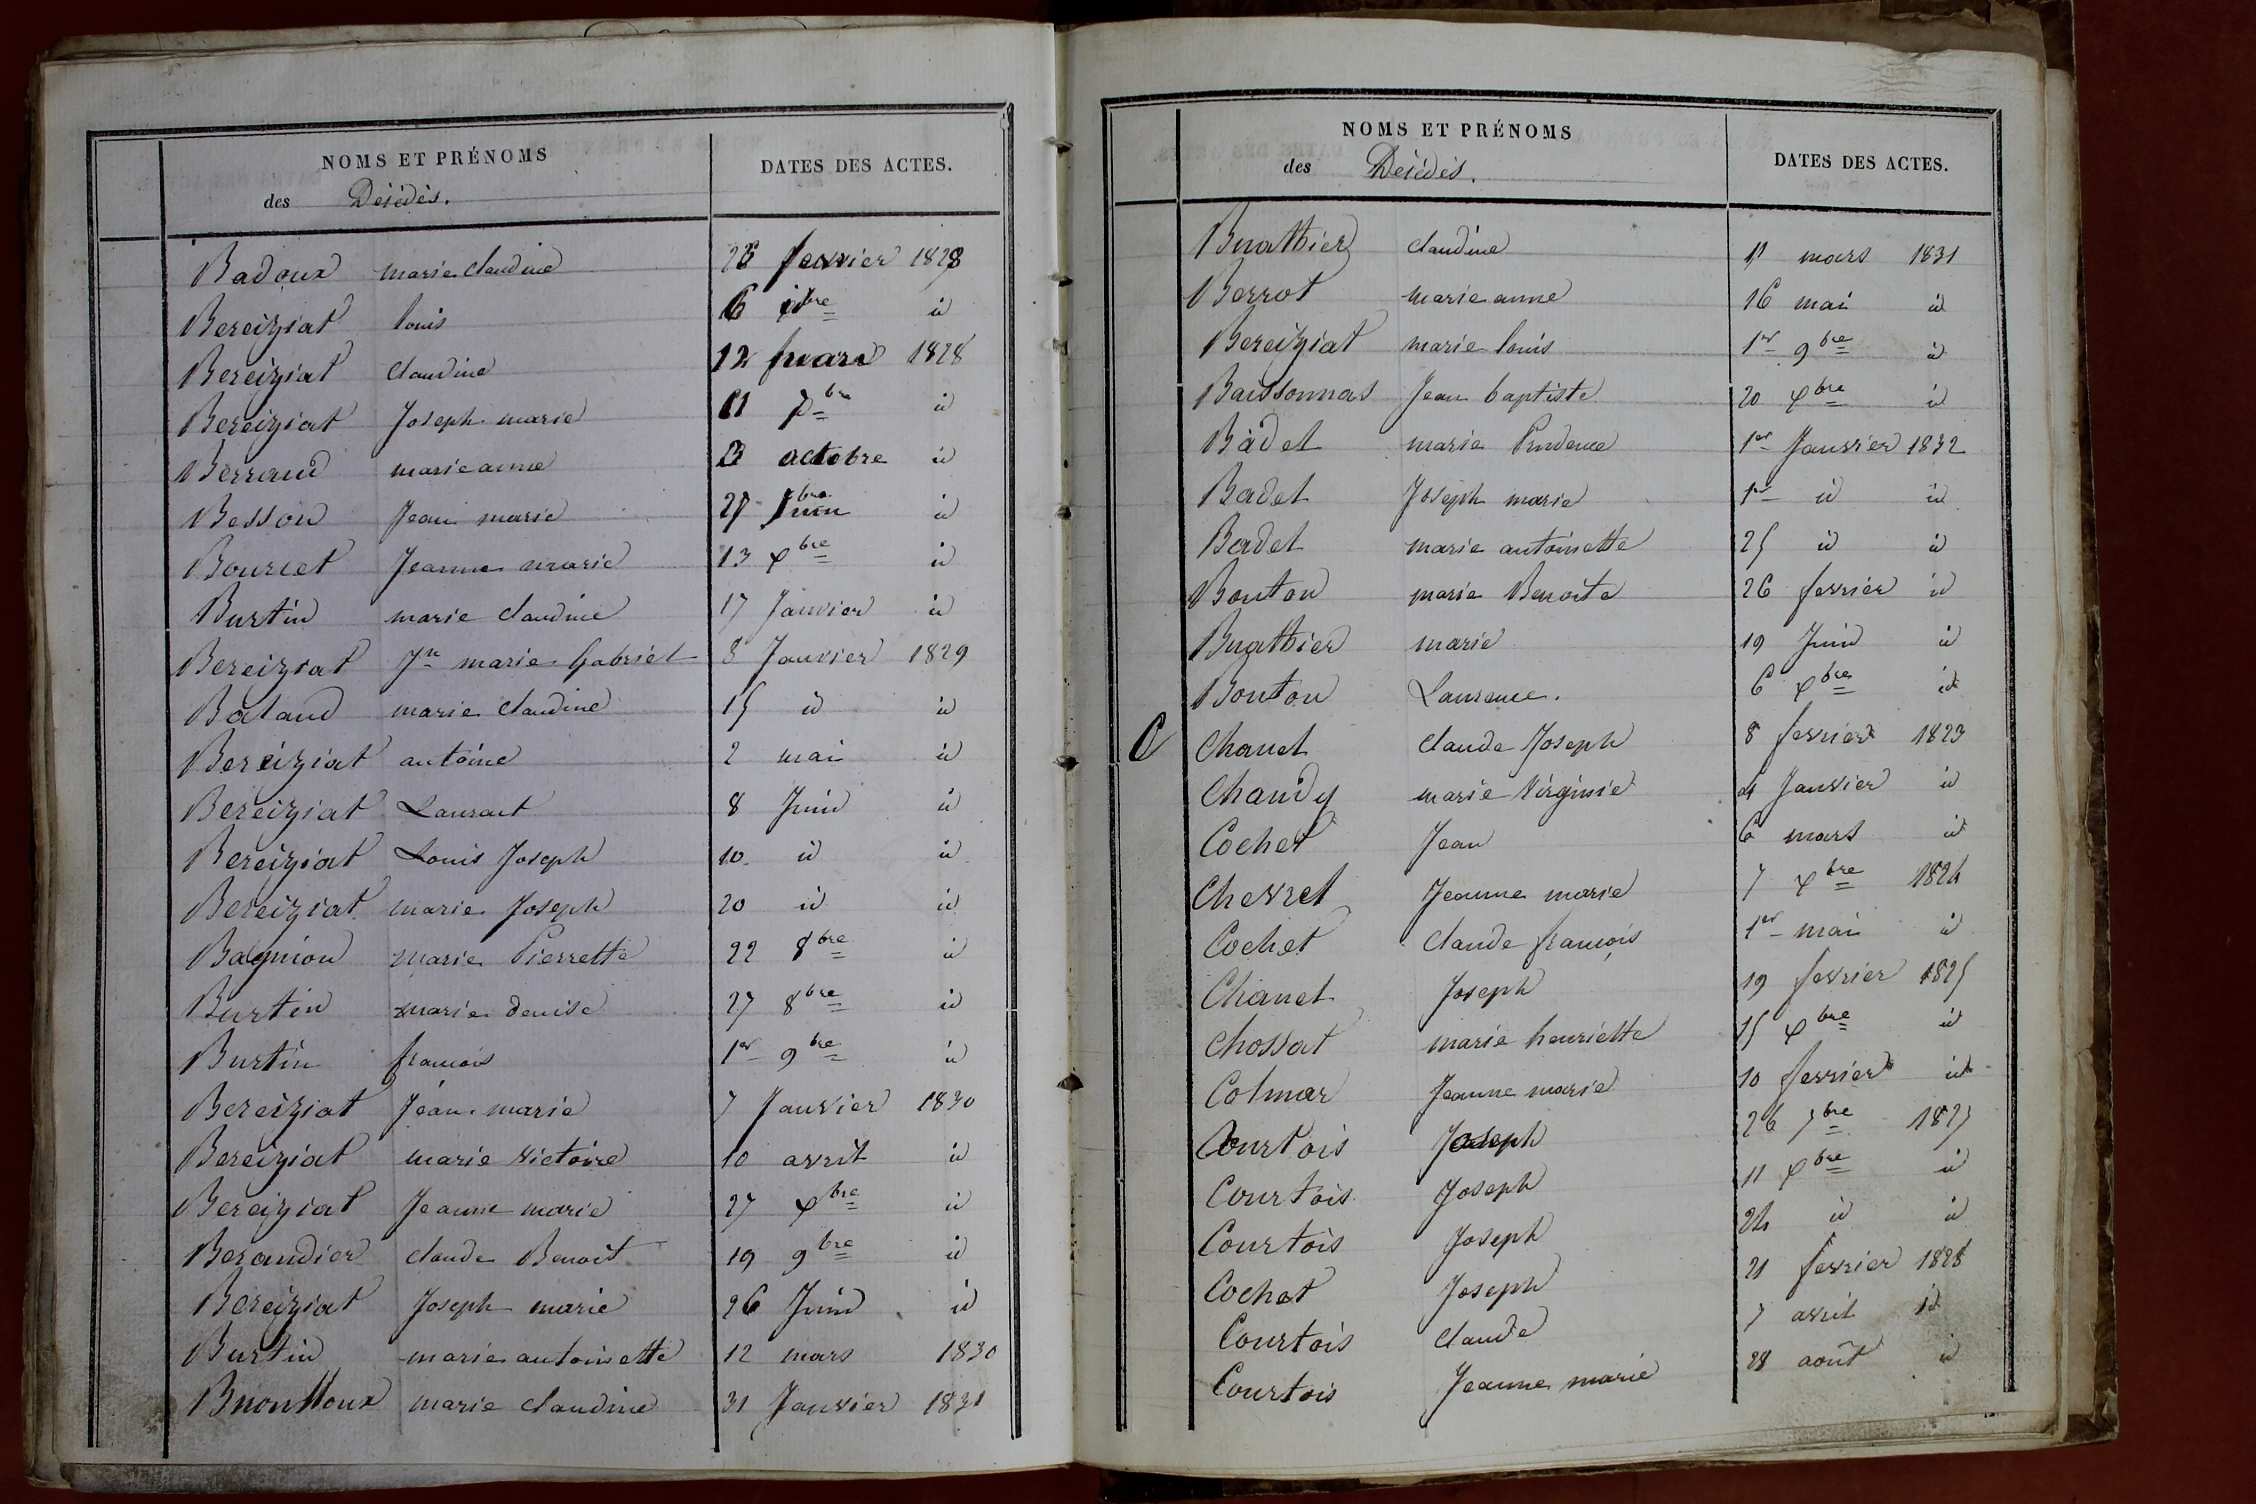 NOMS ET PRÉNOMS
des Décédés.
DATES DES ACTES.
Badoux marie claudine fevrier 1828
Bereiziat louis 6 bre id
Bereiziat claudine 12 mars 1828
Bereiziat Joseph marie 11 bre id
Berraud marie anne octobre id
Besson Jean marie 27 id
Bourcet Jeanne marie 13 xbre id
Burtin marie claudine 17 Janvier id
Bereiziat Jn marie Gabriel 8 Janvier 1829
Bataud marie claudine 15 id id
Bereiziat antoine 2 mai id
Bereiziat Laurent 8 Juin id
Bereiziat Louis Joseph 10 id id
Bereiziat marie Joseph 20 id id
Bagnion marie Pierrette 22 8bre id
Burtin marie denise 27 8bre id
Burtin francois 1er 9bre id
Bereiziat Jean marie 7 Janvier 1830
Bereiziat marie victoire 10 avril id
Bereiziat Jeanne marie 27 xbre id
Beraudier claude Benoit 19 9bre id
Bereiziat Joseph marie 26 Juin id
Burtin marie antoinette 12 mars 1830
marie claudine 31 Janvier 1831
NOMS ET PRÉNOMS
des Décédés.
DATES DES ACTES.
Buathier claudine 11 mars 1831
Berrot marie anne 16 mai id
Bereiziat marie louis 1er 9bre id
Baissonnas Jean baptiste 20 xbre id
Badet marie Prudence 1er Janvier 1832
Badet Joseph marie 1er id id
Badet marie antoinette 25 id id
Bouton marie Benoite 26 fevrier id
Buathier marie 19 Juin id
Bouton Laurence. 6 xbre id
C Chanel claude Joseph 8 fevrier 1823
Chaudy marie Virginie 4 Janvier id
Cochet Jean 6 mars id
Chevret Jeanne marie 7 xbre 1824
Cochet claude françois 1er mai id
Chanel Joseph 19 fevrier 1825
Chossat marie henriette 15 xbre id
Colmar Jeanne marie 10 fevrier id
Courtois Joseph 26 7bre 1827
Courtois Joseph 11 xbre id
Courtois Joseph 24 id id
Cochet Joseph 21 fevrier 1828
Courtois claude 7 avril id
Courtois Jeanne marie 28 août id